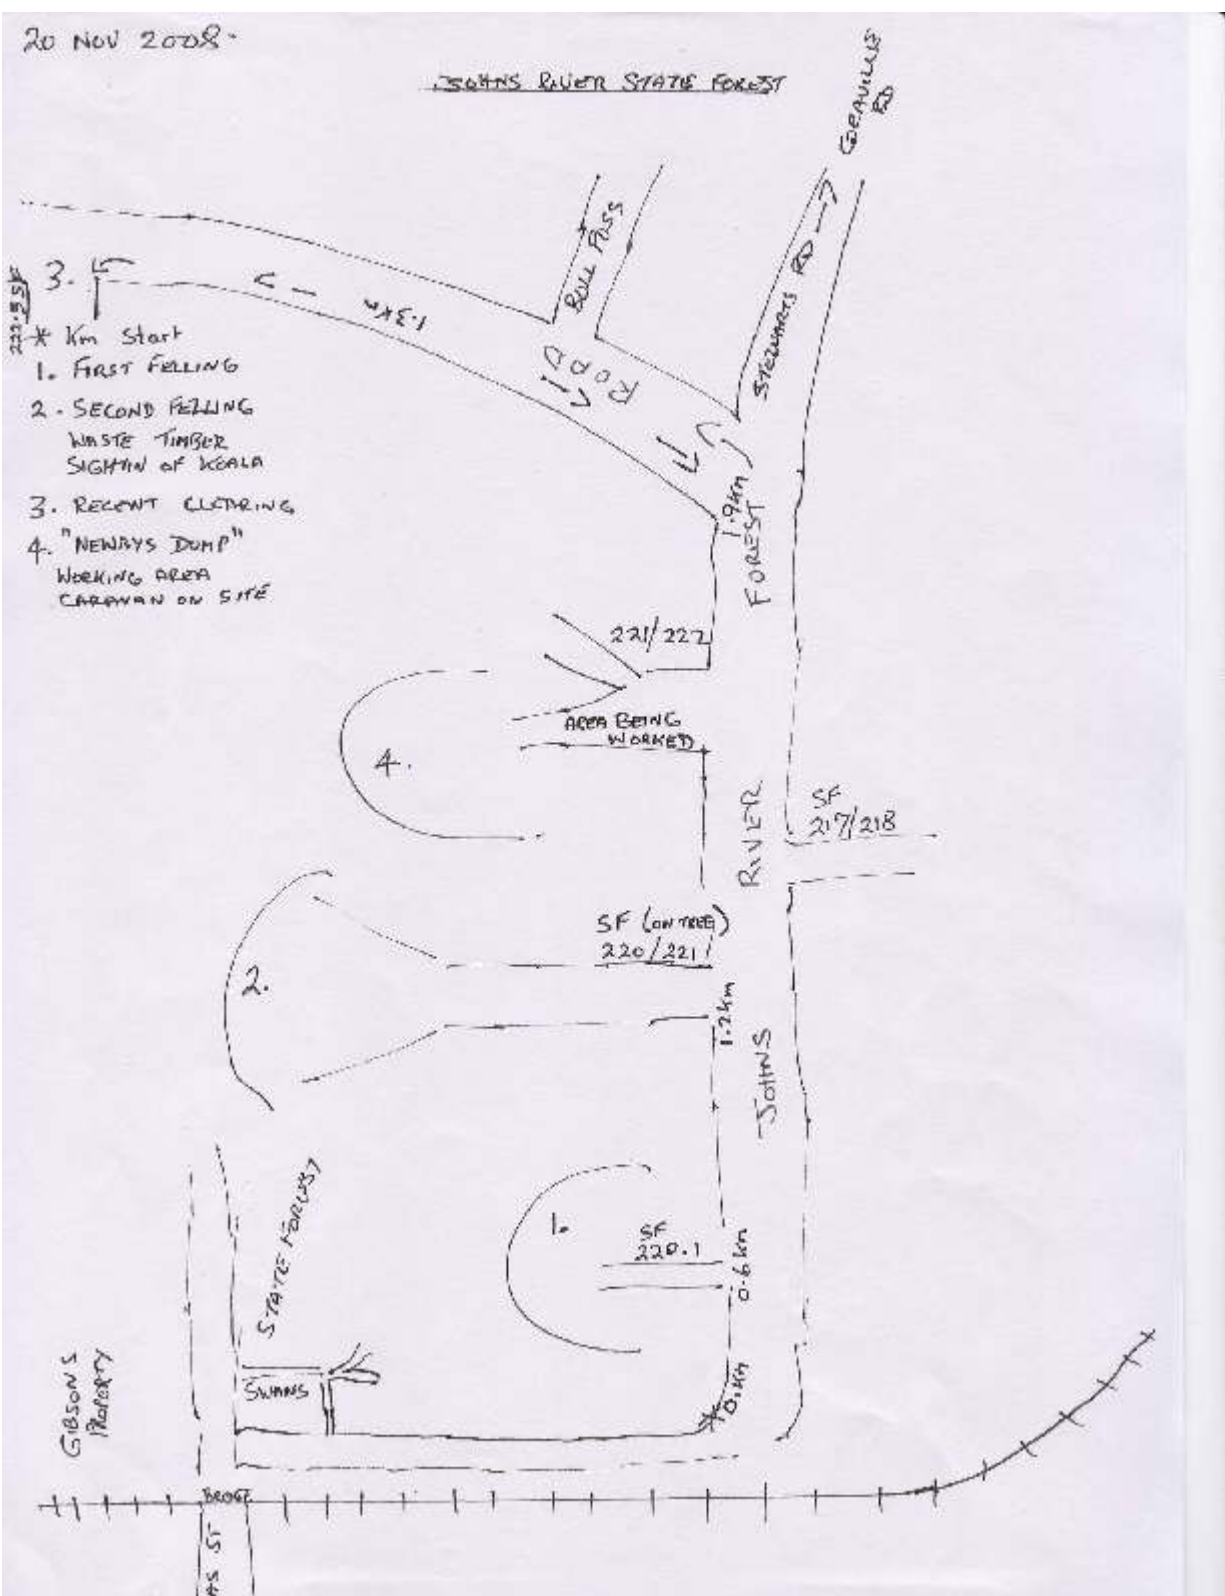 20 NOV 2008.
JOHNS RIVER STATE FOREST
RD
STEWARTS RD
BULL PASS
ROAD
1.3Km
3.
* Km Start
1. FIRST FELLING
2. SECOND FELLING
WASTE TIMBER
SIGHTIN OF KOALA
3. RECENT CLEARING
4. "NEWBYS DUMP"
WORKING AREA
CARAVAN ON SITE
1.9Km
JOHNS RIVER FOREST
221/222
AREA BEING
WORKED
4.
SF
217/218
SF (ON TREE)
220/221
2.
1.2Km
STATE FOREST
1.
SF
220.1
0.6Km
0.Km
SWANS
GIBSONS
PROPERTY
BRDGE
AS ST